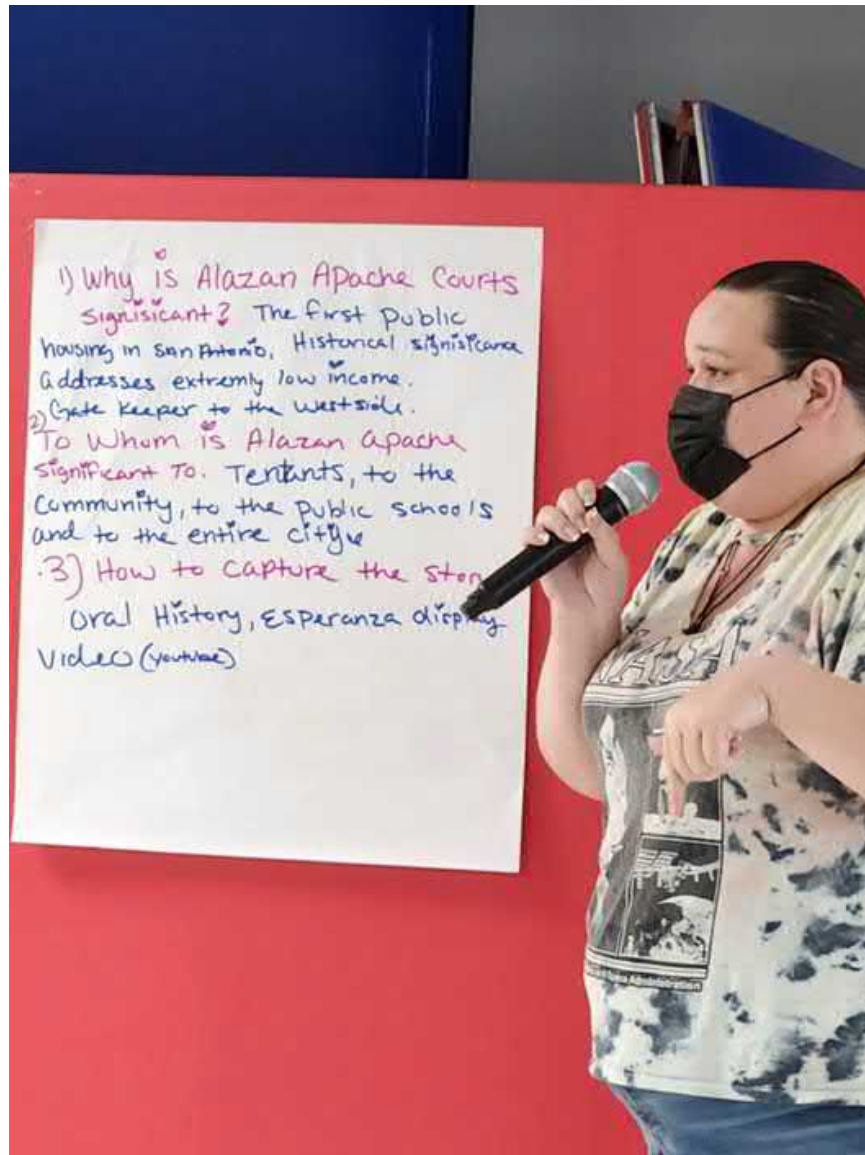 1) Why is Alazan Apache Courts
Signisicant? The first Public
housing in San Antonio, Historical significance
addresses extremly low income.
Gate Keeper to the westside.
2)
To Whom is Alazan apache
significant To. Tenants, to the
Community, to the public schools
and to the entire city
.3) How to Capture the Stor
Oral History, Esperanza display
Video (Youtube)
NASA
Administration